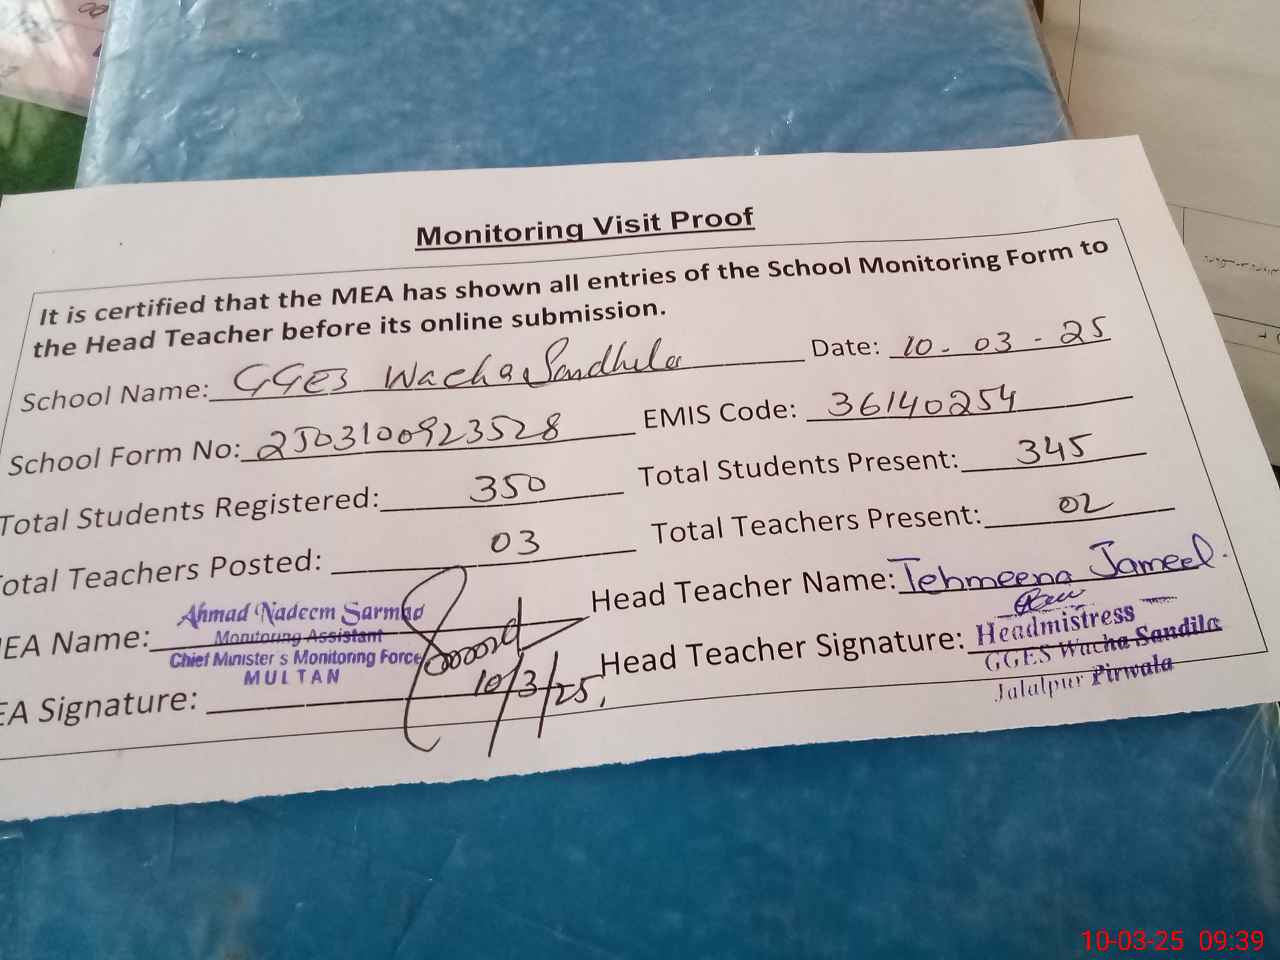 Monitoring Visit Proof
It is certified that the MEA has shown all entries of the School Monitoring Form to
the Head Teacher before its online submission.
School Name: GGES Wacha Sandhila Date: 10-03-25
School Form No: 2503100923528 EMIS Code: 36140254
Total Students Registered: 350 Total Students Present: 345
Total Teachers Posted: 03 Total Teachers Present: 02
MEA Name: Head Teacher Name: Tehmeena Jameel.
Ahmad Nadeem Sarmad
Monitoring Assistant
Chief Minister's Monitoring Force
MULTAN
EA Signature: 10/3/25, Head Teacher Signature:
Headmistress
GGES Wacha Sandila
Jalalpur Pirwala
10-03-25 09:39